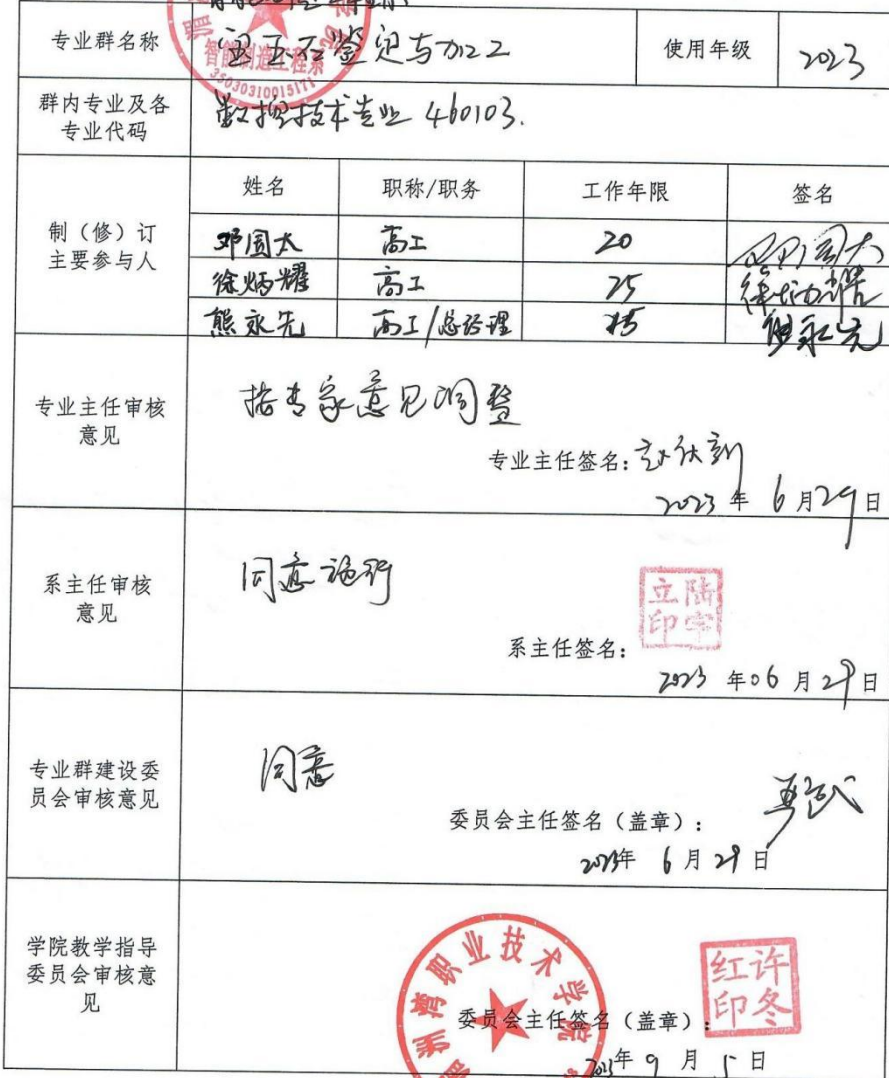 专业群名称 宝玉石鉴定与加工 使用年级 2023
智能制造工程系
35030310015171
群内专业及各
专业代码
数控技术专业 460103.
制（修）订
主要参与人
姓名 职称/职务 工作年限 签名
邓国太 高工 20 邓国太
徐炳耀 高工 25 徐炳耀
熊永先 高工/总经理 熊永先
专业主任审核
意见
按专家意见调整
专业主任签名:
2023 年 6 月 29 日
系主任审核
意见
同意施行
陆宇
立印
系主任签名:
2023 年 06 月 29 日
专业群建设委
员会审核意见
同意
委员会主任签名（盖章）:
2023年 6 月 29 日
学院教学指导
委员会审核意
见
湄洲湾职业技术学院
许冬
红印
委员会主任签名（盖章）:
2023年 9 月 5 日